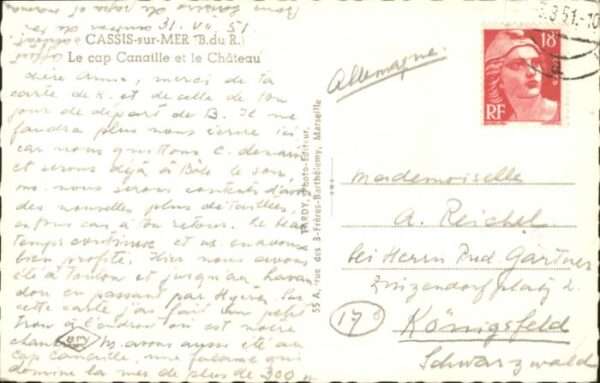 CASSIS-sur-MER (B.du R.)
Le cap Canaille et le Château
chère Anna, merci de ta
carte de K. et de celle de ton
jour de départ de B. Il ne
faudra plus nous écrire ici
car nous quittons C. demain
et serons déjà à Bâle le soir,
nous serons contents d'avoir
des nouvelles plus détaillées
à ton retour. Le beau
temps continue et ns en avons
bien profité. Hier nous avons
été à Toulon et jusqu'au
en passant par Hyères. Sur
cette carte j'ai fait un petit
à l'endroit où est notre
chambre. Ns avons aussi été au
cap Canaille, une falaise qui
domine la mer de plus de 300 m
TARDY, Photo-Editeur,
55 A, rue des 3-Frères-Barthélemy, Marseille
Allemagne.
18F
RF
3.51.-10
Mademoiselle
A. Reichel
bei Herrn Pud. Gärtner
Zinzendorfplatz 2.
17b
Königsfeld
Schwarzwald